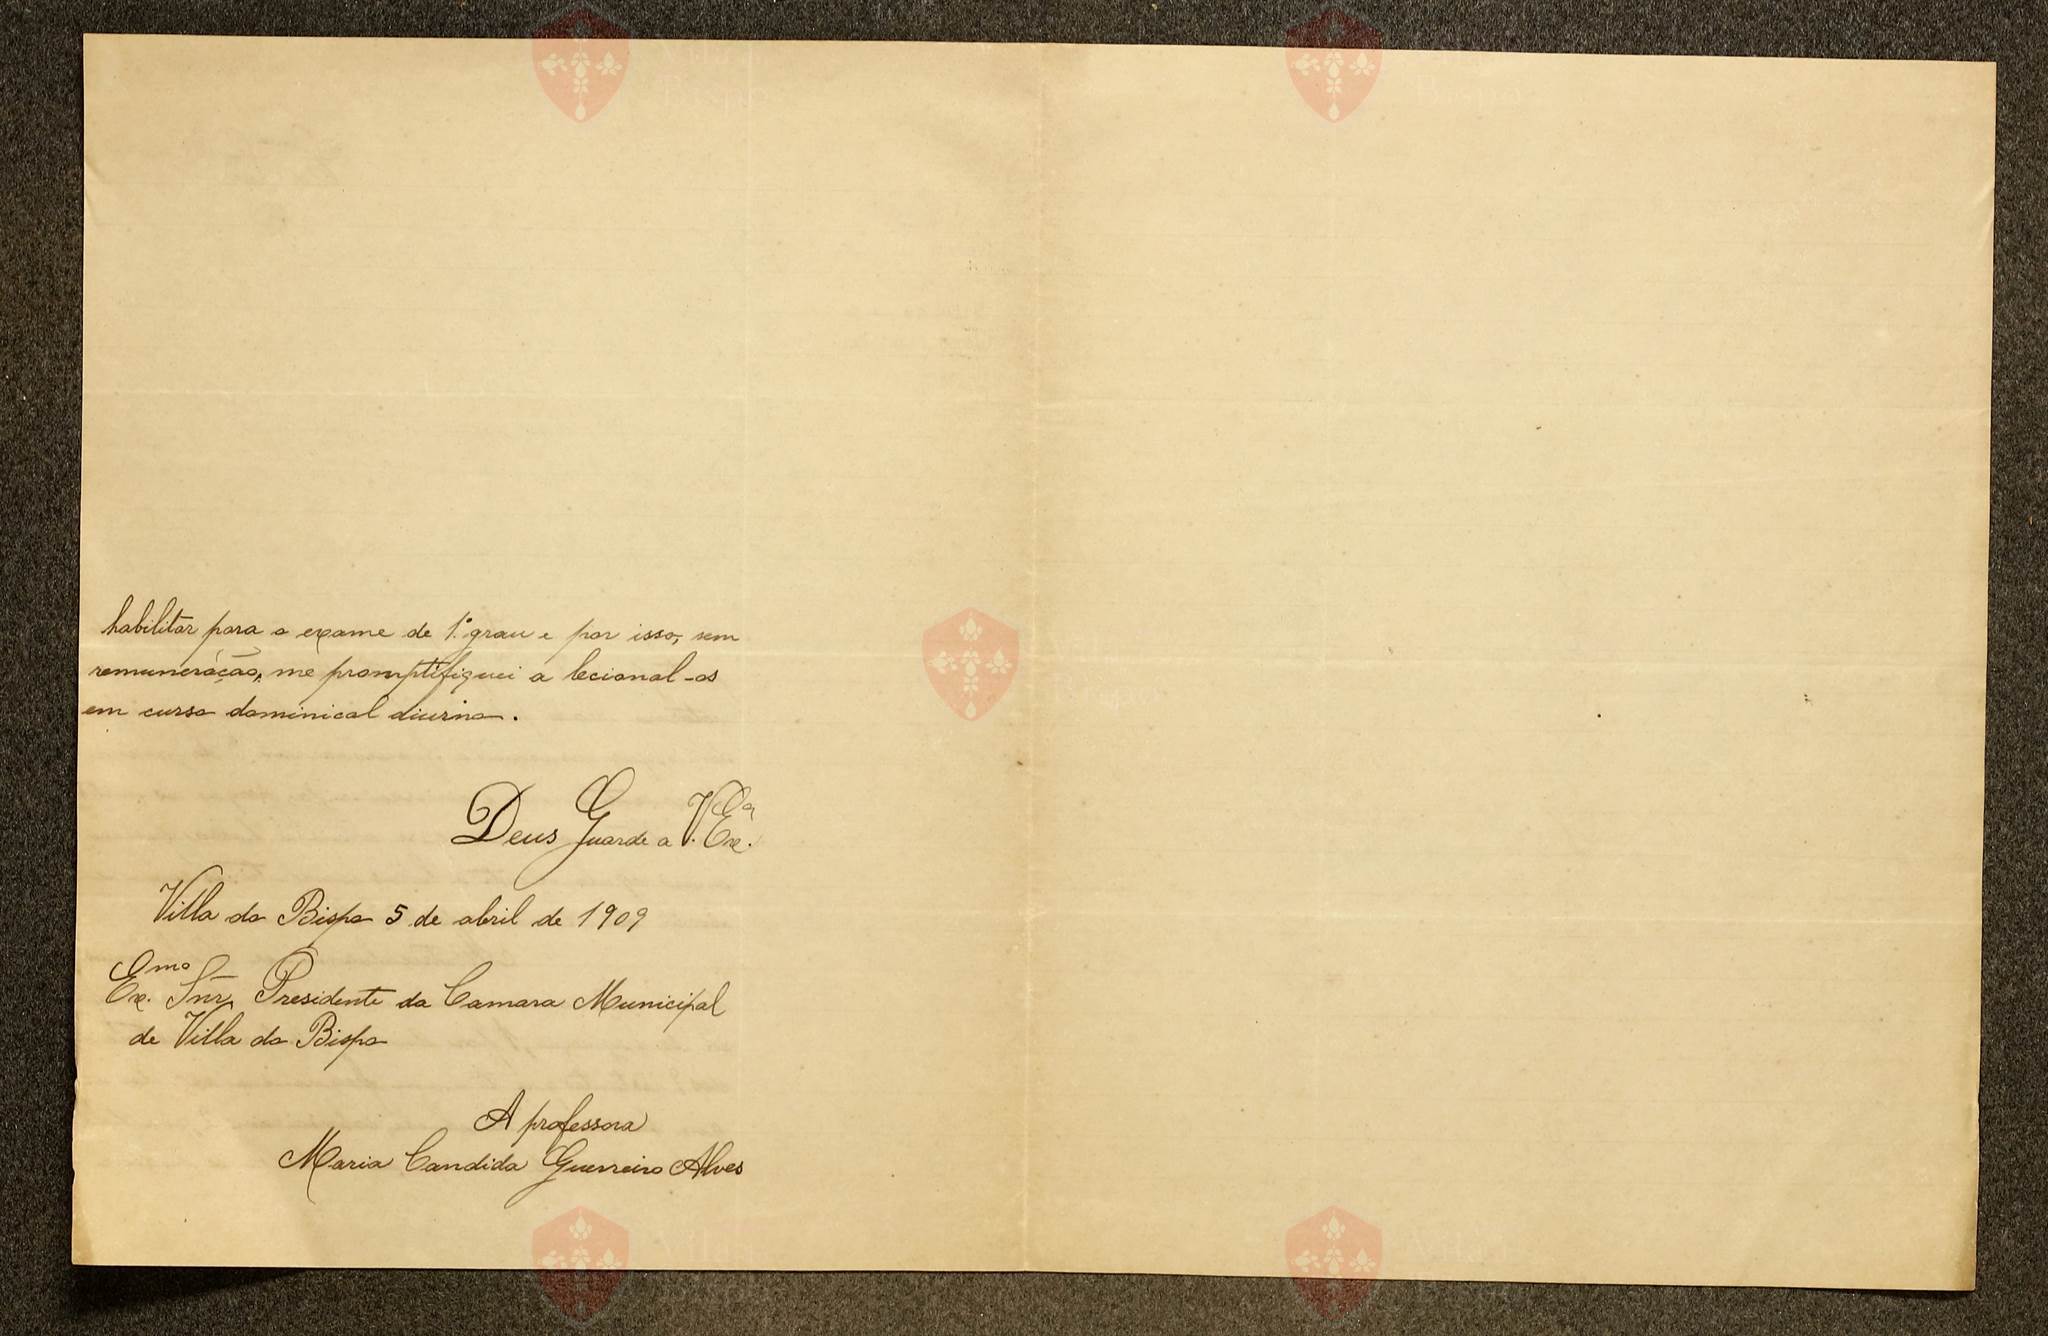 habilitar para o exame de 1.º grau e por isso, sem
remuneração, me promptifiquei a lecional-os
em curso dominical diurno.
Deus Guarde a V. Ex.ª
Villa do Bispo 5 de abril de 1909
Ex.mo Snr. Presidente da Camara Municipal
de Villa do Bispo
A professora
Maria Candida Guerreiro Alves